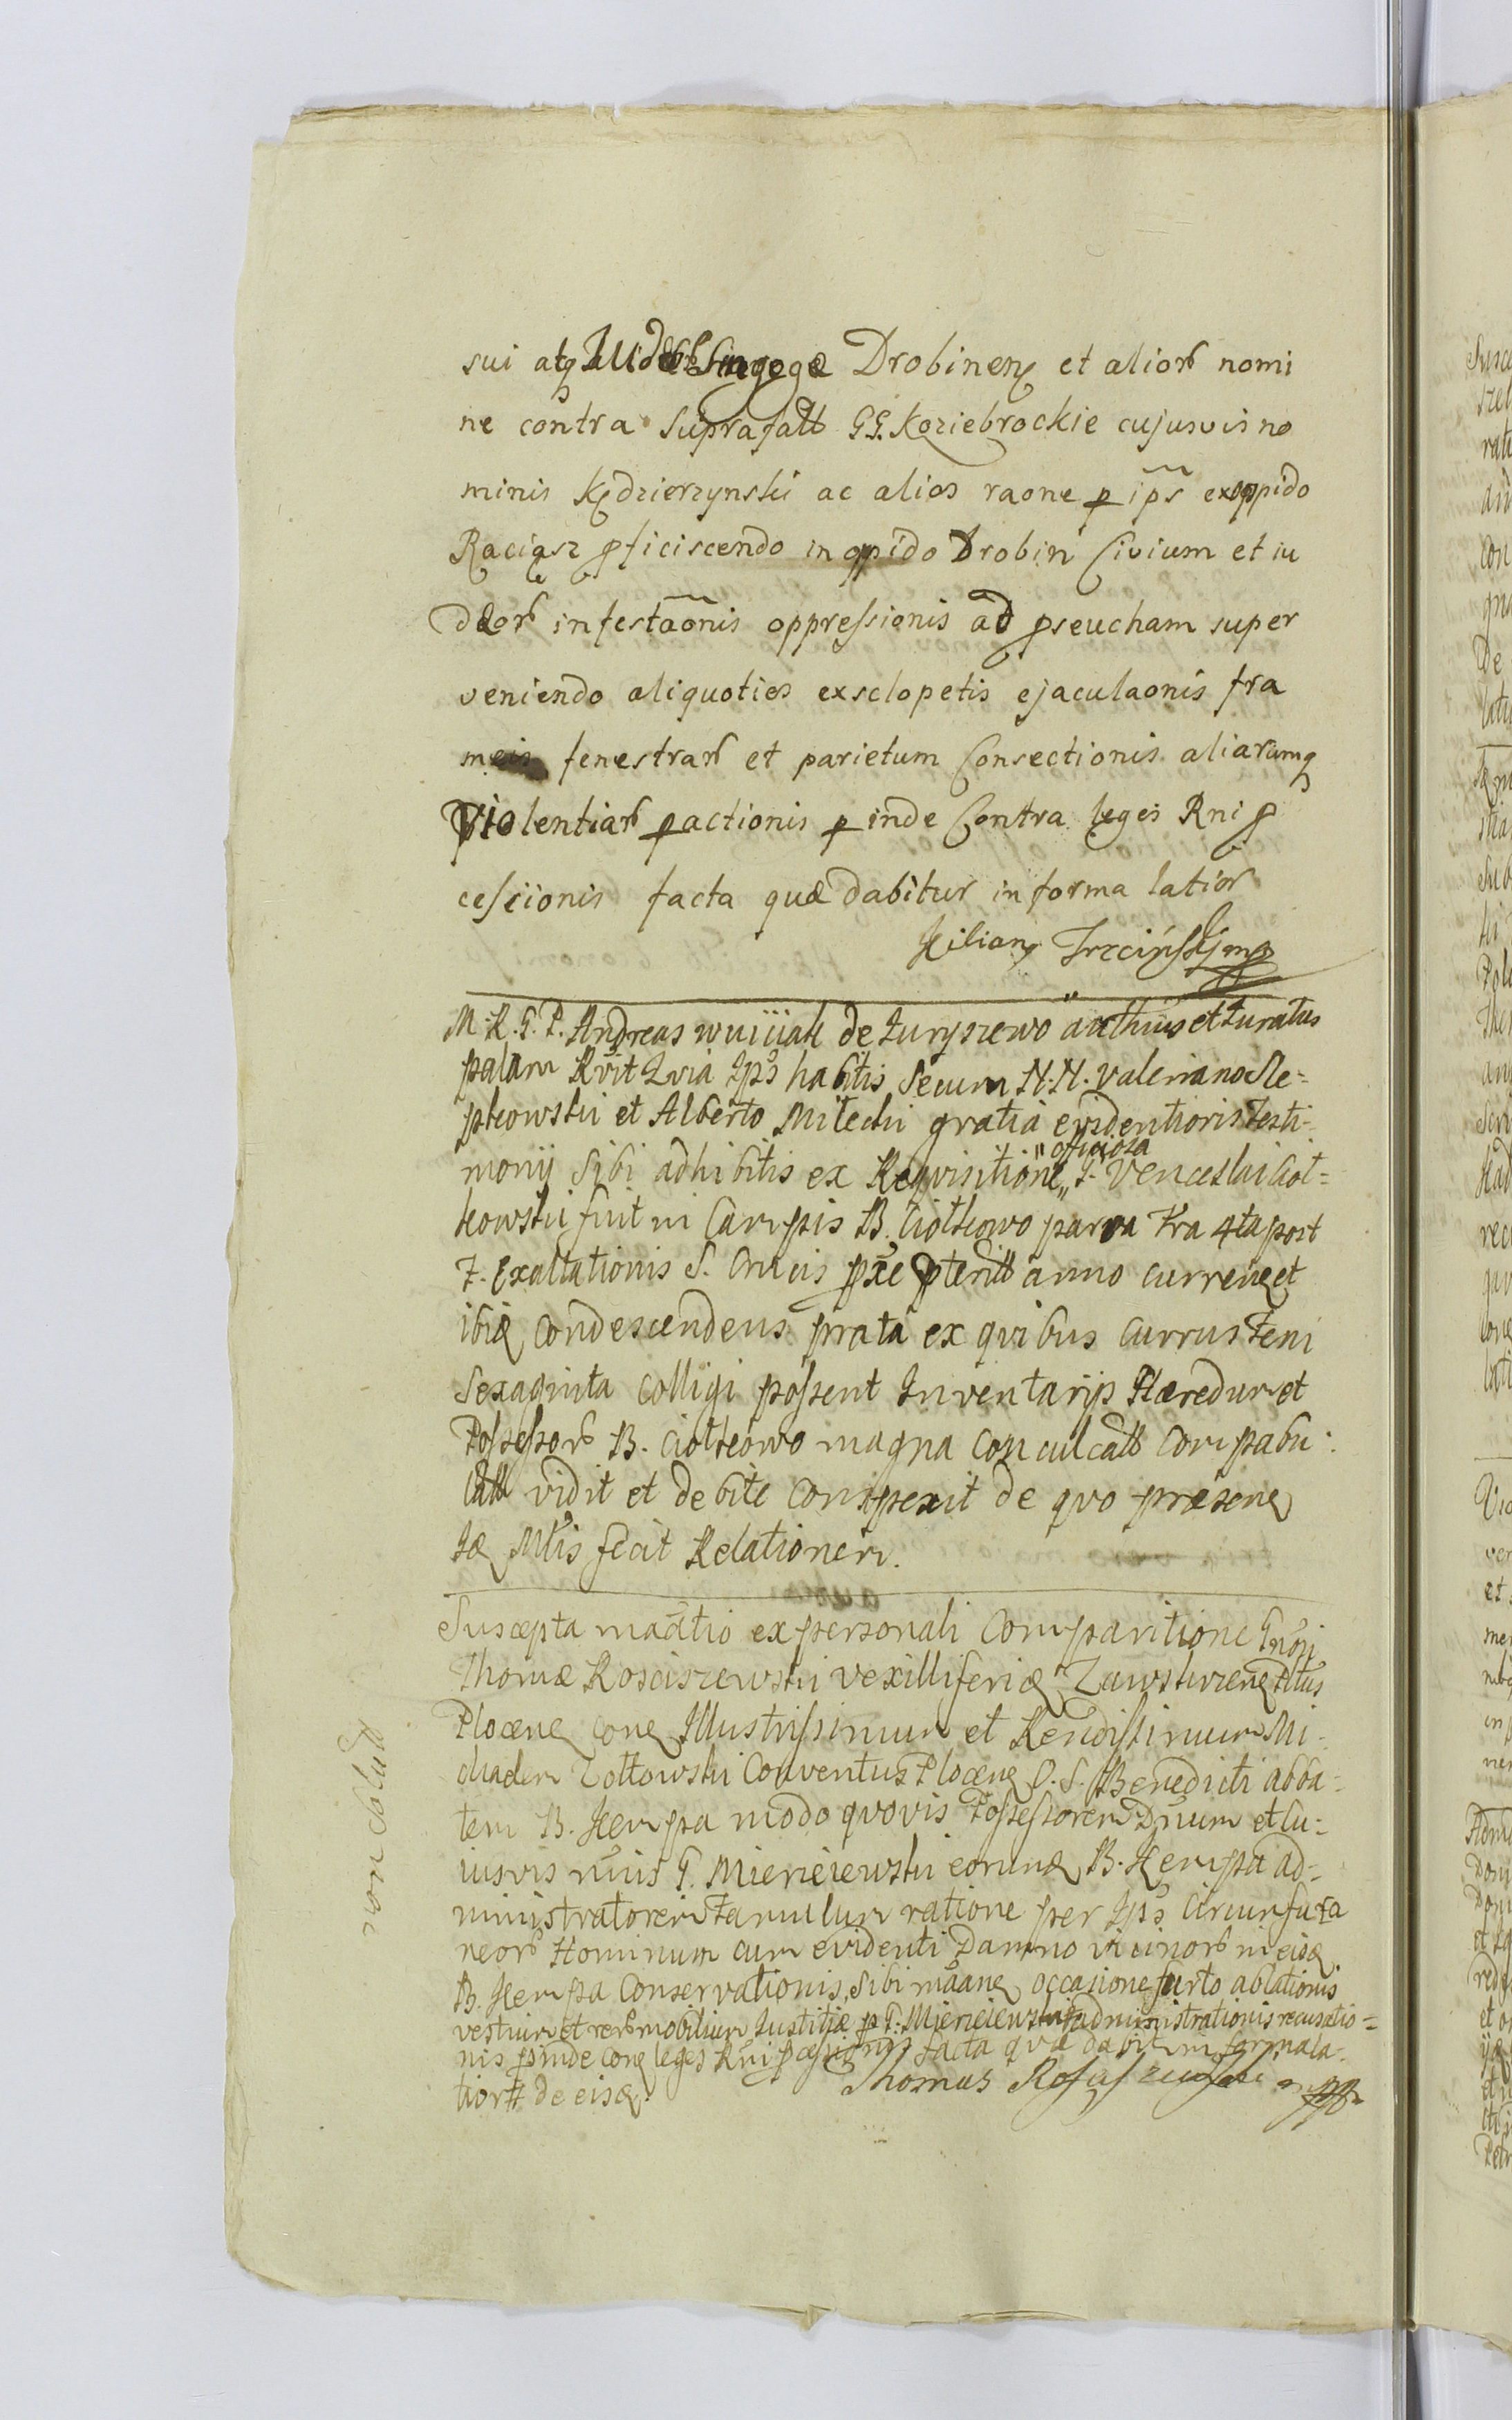 sui atq Judeor Sinagogæ Drobinen et alior nomi
ne contra suprafatt GG. Koziebrockie cujusvis no
minis Kędzierzynski ac alios raone p ips ex oppido
Raciąsz pficiscendo in oppido Drobin Civium et iu
dæor infestaonis oppressionis ad pseucham super
veniendo aliquoties exsclopetis ejaculaonis fra
meis fenestrar et parietum Consectionis aliarumq
violentiar pactionis p inde Contra leges Rni p
cessionis facta quæ dabitur in forma latior
Kilian Trzciński mp
M. R. G. P. Andreas wuiiiak de Juryszewo authius et Juratus
palam Rvit Qvia Ips habitis secum N.N. Valeriano Sle-
pkowski et Alberto Miłecki gratia evidentioris Testi-
monij sibi adhibitis ex Reqvisitione officiosa G. Venceslai Ciot-
kowski fuit in Campis B. Ciotkowo parva Fra 4ta post
F. Exaltationis S. Crucis pxe pteritt anno curren et
ibiq condescendens prata ex qvibus currus Feni
sexaginta colligi possent Inventarijs Hæredum et
Possessor B. Ciotkowo magna conculcatt compabu-
latt vidit et debite conspexit de qvo præsens
Jæ Mtis fecit Relationem.
Suscepta maatio ex personali Comparitione Gnosi
Thomæ Rosciszewski vexilliferiæ Zawskrzen Pttus
Plocen con Illustrissimum et Rendissimum Mi-
chaelem Zołtowski Conventus Plocen O. S. Benedicti abba-
tem B. Kempa modo qvovis Possessorem Dnum et cu-
iusvis nuis G. Mierieiewski eorund B. Kempa ad-
ministratorem Famulum ratione per Ips circumfora
neor Hominum cum evidenti Damno vicinor in eisd
B. Kempa Conservationis, sibi maan occasione furto ablationis
vestium et rer mobilium Justitiæ p G. Mierieiewski administrationis recusatio-
nis pinde con leges Rni pcessionis facta qvæ dabit in forma la-
tior de eisd.
Thomas Rosciszewski mpp
non solutt